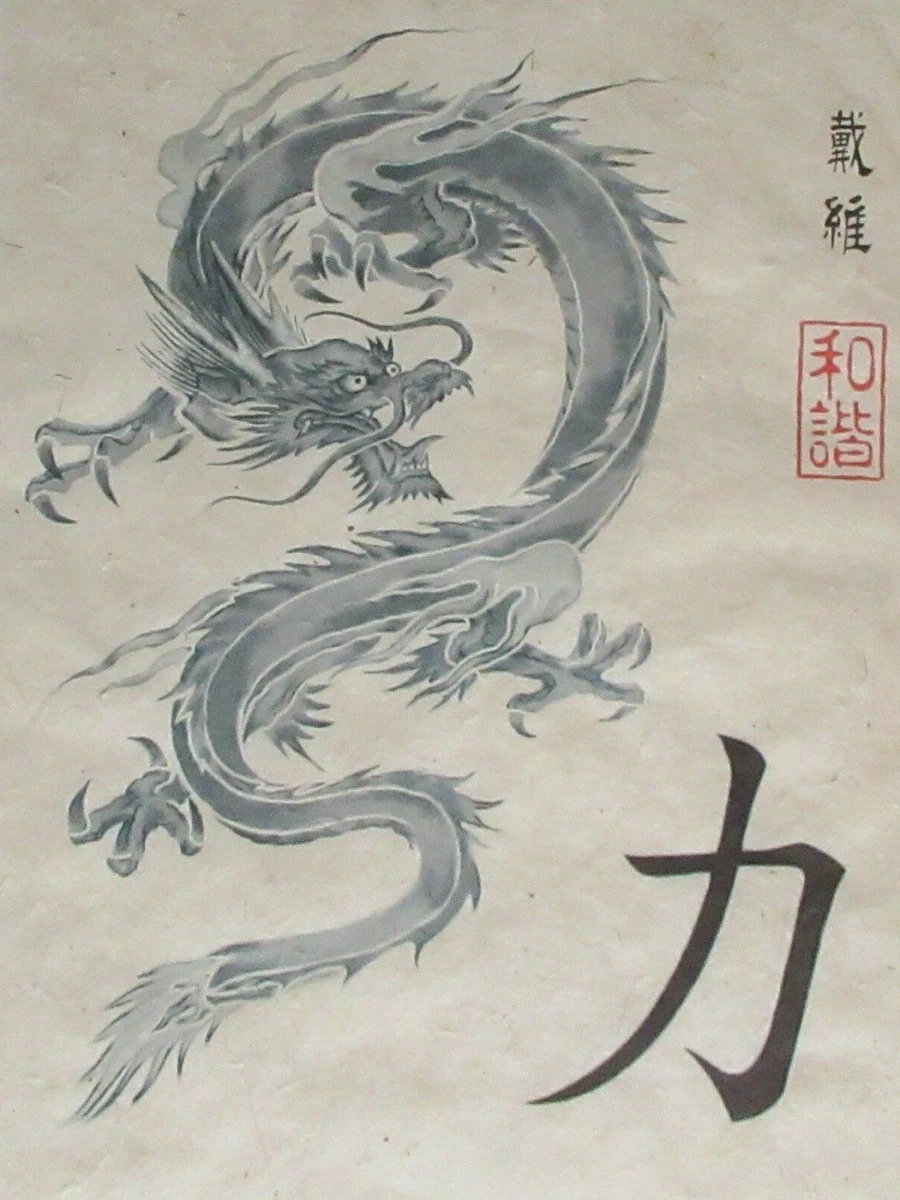 戴維
和諧
力